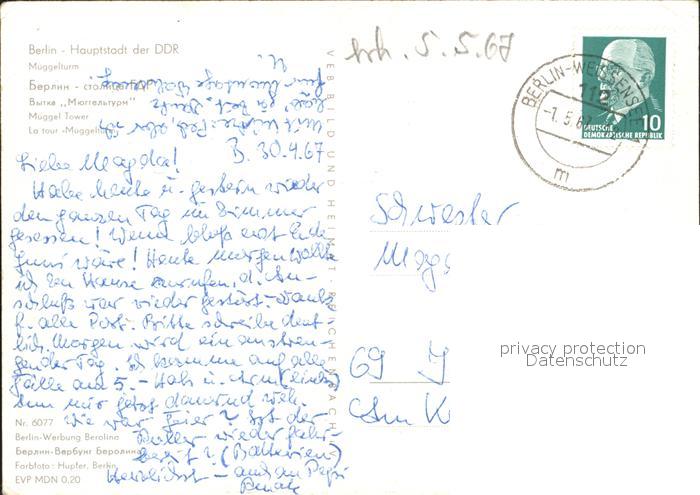 Berlin - Hauptstadt der DDR
Müggelturm
Берлин - столица ГДР
Вытка „Мюггельтурм"
Müggel Tower
La tour »Müggelturm«
erh. 5. 5. 67
BERLIN-WEISSENSEE 1
112
-1. 5. 67
m
DEUTSCHE
DEMOKRATISCHE REPUBLIK
10
VEB BILD UND HEIMAT · REICHENBACH
B. 30.4.67
Liebe Magda!
Habe heute u. gestern wieder
den ganzen Tag im Zimmer
gesessen! Wenn bloß erst Ende
Juni wäre! Heute morgen wollte
ich zu Hause anrufen, d. An-
schluß war wieder gestört - Dank
f. alle Post. Bitte schreibe deut-
lich. Morgen wird ein anstren-
gender Tag. Ich komme auf alle
Fälle am 5. - Hals u. Arm (links)
tun mir jetzt dauernd weh.
Wie war Feier? Ist der
wieder fahr-
bereit? (Batterien)
Herzlichst -
Schwester
Mag
69 J
Am K
privacy protection
Datenschutz
Nr. 6077
Berlin-Werbung Berolina
Берлин-Вербунг Беролина
Farbfoto: Hupfer, Berlin
EVP MDN 0,20